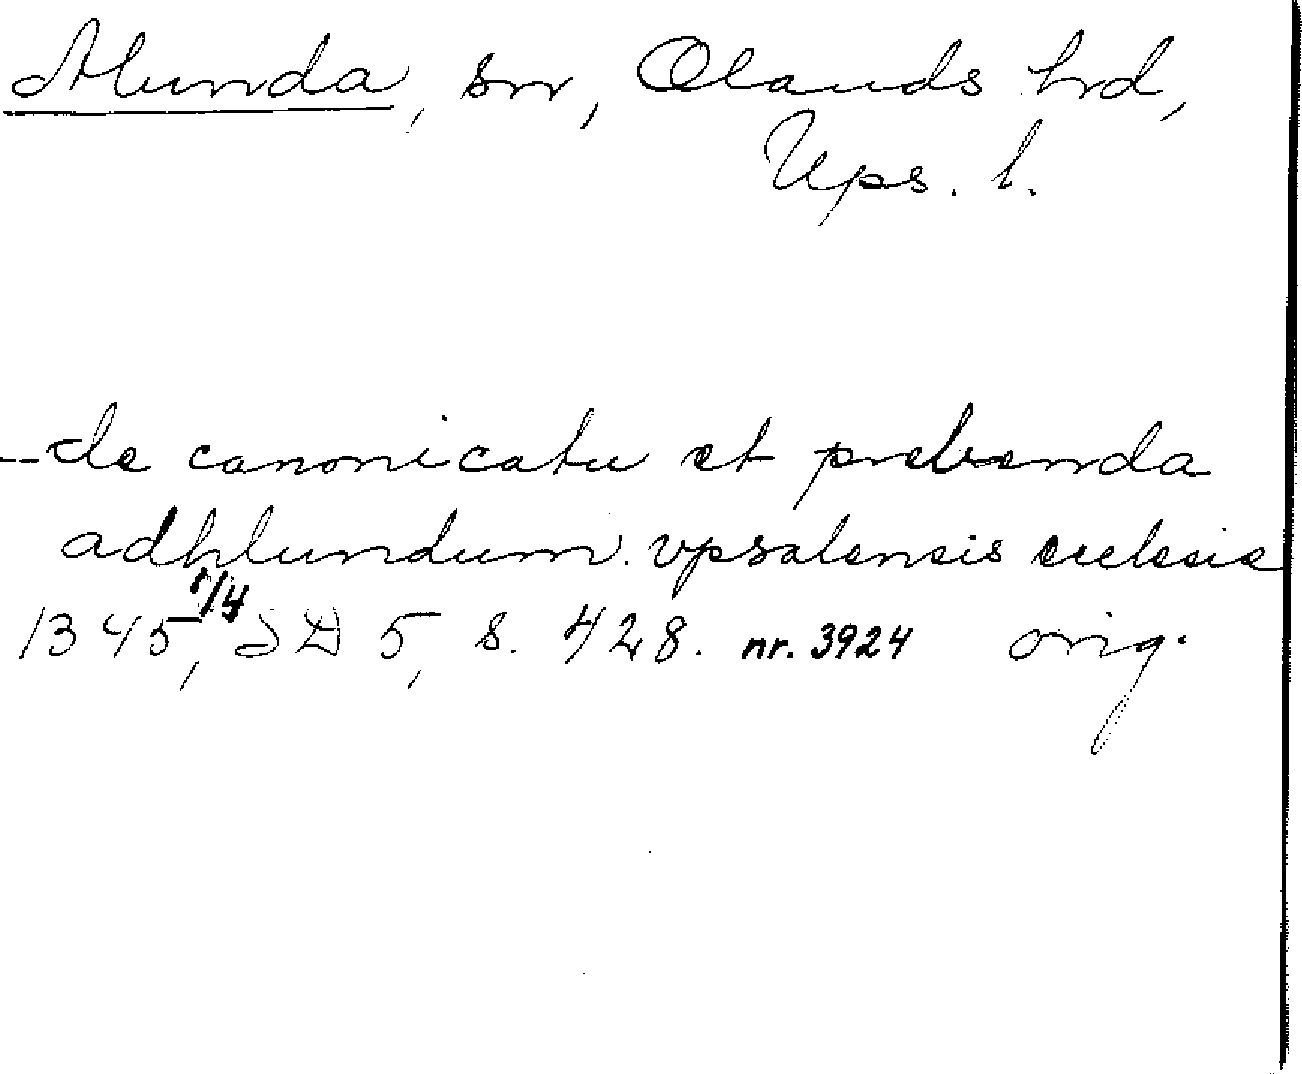 Alunda, sn, Olands hd,
Ups. l.
- de canonicatu et prebenda
adhlundum. vpsalensis ecclesie
1345 1/4, SD 5, s. 428. nr. 3924 orig.